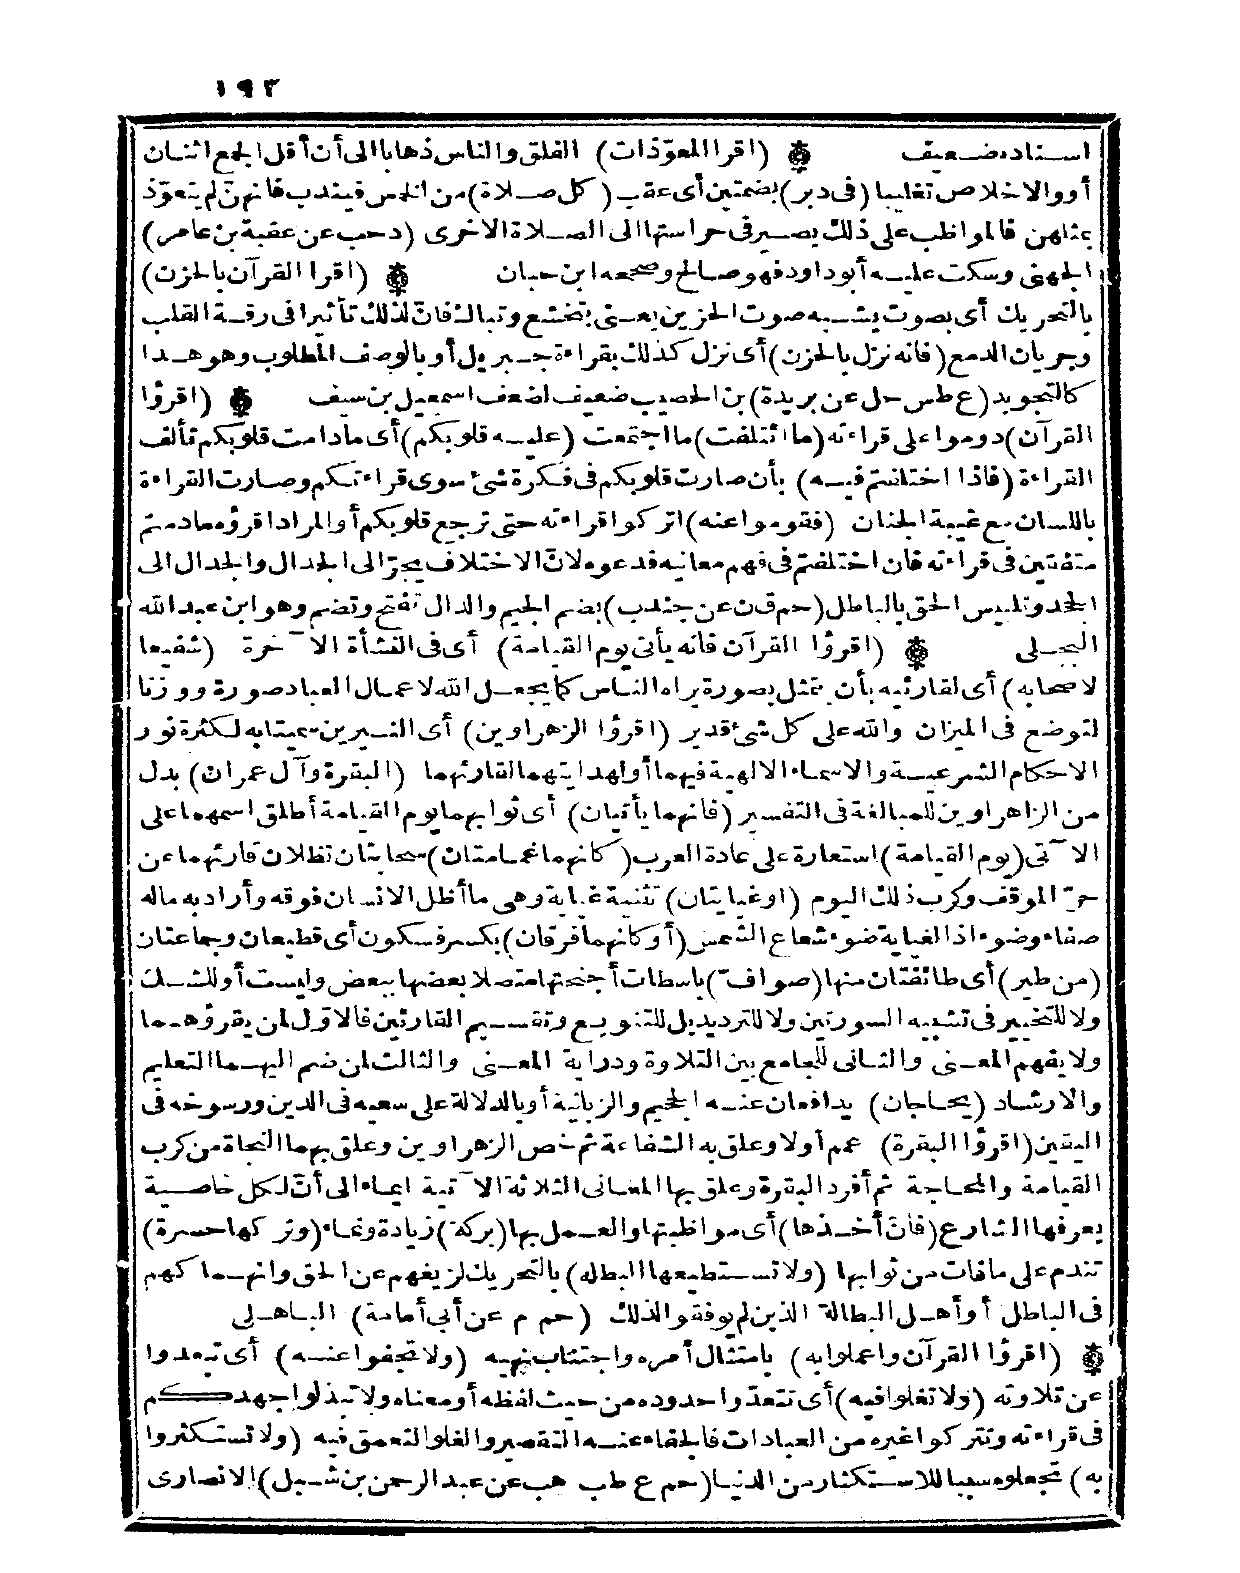 ١٩٣
اسناده ضعيف ۞ (اقرا المعوّذات) الفلق والناس ذهابا الى أن أقل الجمع اثنان
أو والاخلاص تغليبا (فى دبر) بضمتين أى عقب (كل صلاة) من الخمس فيندب فانهنّ لم يتعوّذ
بمثلهن فالمواظب على ذلك يصير فى حراستها الى الصلاة الاخرى (د حب عن عقبة بن عامر)
الجهنى وسكت عليه أبو داود فهو صالح وصححه ابن حبان ۞ (اقرا القرآن بالحزن)
بالتحريك أى بصوت يشبه صوت الحزين يعنى بتخشع وتباك فانّ لذلك تأثيرا فى رقة القلب
وجريان الدمع (فانه نزل بالحزن) أى نزل كذلك بقراءة جبريل أو بالوصف المطلوب وهو هذا
كالتجويد (ع طس حل عن بريدة) بن الحصيب ضعيف لضعف اسمعيل بن سيف ۞ (اقرؤا
القرآن) دوموا على قراءته (ما ائتلفت) ما اجتمعت (عليه قلوبكم) أى ما دامت قلوبكم تألف
القراءة (فاذا اختلفتم فيه) بأن صارت قلوبكم فى فكرة شئ سوى قراءتكم وصارت القراءة
باللسان مع غيبة الجنان (فقوموا عنه) اتركوا قراءته حتى ترجع قلوبكم أو المراد اقرؤه ما دمتم
متفقين فى قراءته فان اختلفتم فى فهم معانيه فدعوه لانّ الاختلاف يجرّ الى الجدال والجدال الى
الجحد وتلبيس الحق بالباطل (حم ق ن عن جندب) بضم الجيم والدال تفتح وتضم وهو ابن عبد الله
البجلى ۞ (اقرؤا القرآن فانه يأتى يوم القيامة) أى فى النشأة الآخرة (شفيعا
لاصحابه) أى لقارئيه بأن يتمثل بصورة يراه الناس كما يجعل الله لاعمال العباد صورة ووزنا
لتوضع فى الميزان والله على كل شئ قدير (اقرؤا الزهراوين) أى النيرين سميتا به لكثرة نور
الاحكام الشرعية والاسماء الالهية فيهما أو لهدايتهما لقارئهما (البقرة وآل عمران) بدل
من الزاهراوين للمبالغة فى التفسير (فانهما يأتيان) أى ثوابهما يوم القيامة أطلق اسمهما على
الآتى (يوم القيامة) استعارة على عادة العرب (كانهما غمامتان) سحابتان تظلان قارئهما عن
حرّ الموقف وكرب ذلك اليوم (او غيايتان) تثنية غياية وهى ما أظل الانسان فوقه وأراد به ماله
صفاء وضوء اذ الغياية ضوء شعاع الشمس (أو كانهما فرقان) بكسر فسكون أى قطيعان وجماعتان
(من طير) أى طائفتان منها (صوافّ) باسطات أجنحتها متصلا بعضها ببعض وليست أو للشك
ولا للتخيير فى تشبيه السورتين ولا للترديد بل للتنويع وتقسيم القارئين فالاوّل لمن يقرؤهما
ولا يفهم المعنى والثانى للجامع بين التلاوة ودراية المعنى والثالث لمن ضم اليهما التعليم
والارشاد (يحاجان) يدافعان عنه الجحيم والزبانية أو بالدلالة على سعيه فى الدين ورسوخه فى
اليقين (اقرؤا البقرة) عمم أولا وعلق به الشفاعة ثم خص الزهراوين وعلق بهما النجاة من كرب
القيامة والمحاجة ثم أفرد البقرة وعلق بها المعانى الثلاثة الآتية ايماء الى أنّ لكل خاصية
يعرفها الشارع (فانّ أخذها) أى مواظبتها والعمل بها (بركة) زيادة ونماء (وتركها حسرة)
تندم على ما فات من ثوابها (ولا تستطيعها البطله) بالتحريك لزيغهم عن الحق وانهماكهم
فى الباطل أو أهل البطالة الذين لم يوفقوا لذلك (حم م عن أبى أمامة) الباهلى
۞ (اقرؤا القرآن واعملوا به) بامتثال أمره واجتناب نهيه (ولا تجفوا عنه) أى تبعدوا
عن تلاوته (ولا تغلوا فيه) أى تتعدّوا حدوده من حيث لفظه أو معناه ولا تبذلوا جهدكم
فى قراءته وتتركوا غيره من العبادات فالجفاء عنه التقصير والغلو التعمق فيه (ولا تستكثروا
به) تجعلوه سببا للاستكثار من الدنيا (حم ع طب هب عن عبد الرحمن بن شبيل) الانصارى